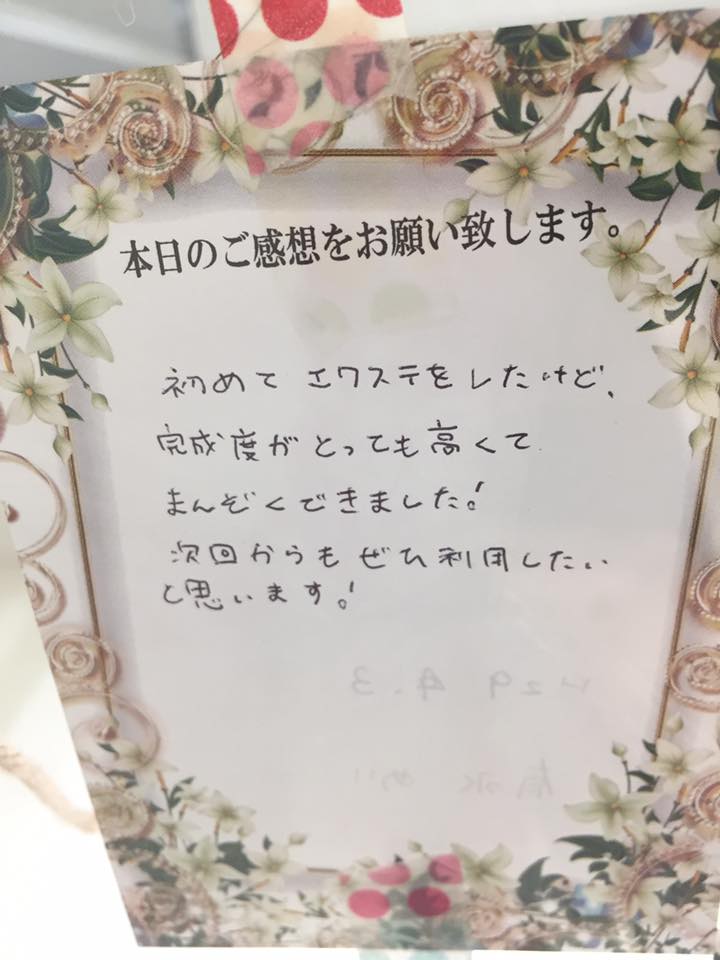 本日のご感想をお願い致します。
初めて エクステをしたけど、
完成度がとっても高くて
まんぞくできました!
次回からも ぜひ利用したい
と思います!
H29 4.3